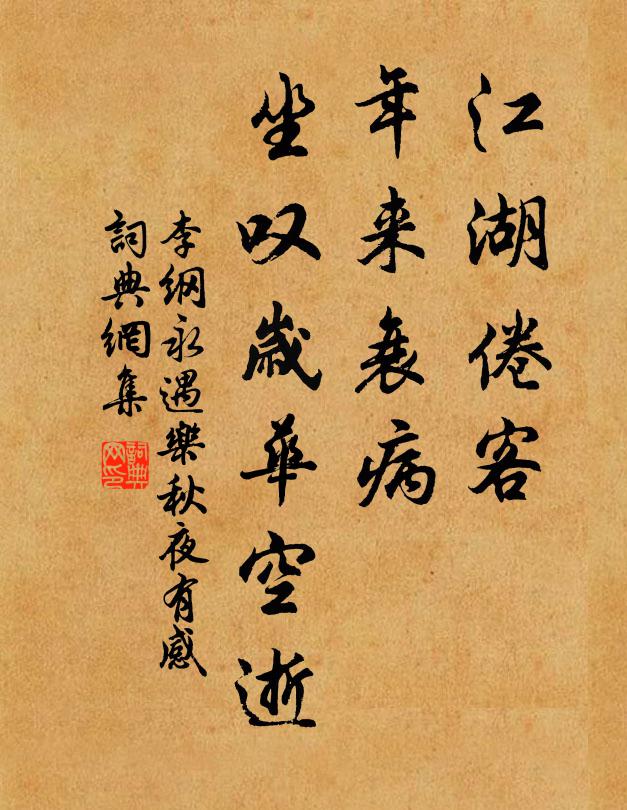 江湖倦客
年来衰病
坐叹歲華空逝
李綱永遇樂秋夜有感
詞典網集
詞典
网印